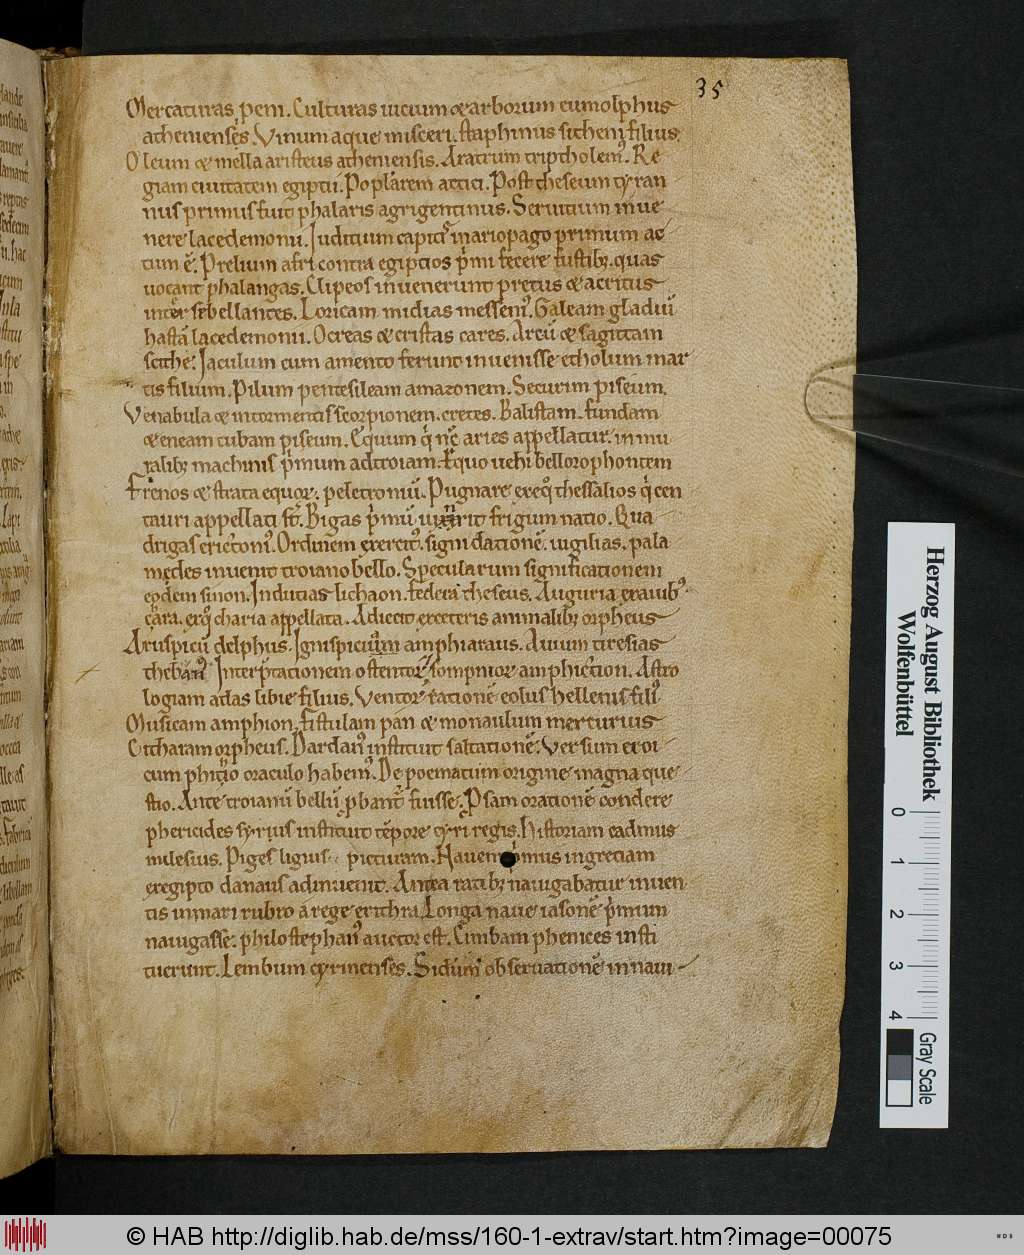 35
Mercaturas peni. Culturas uicium & arborum eumolphus
athenienses. Vinum aque misceri. staphinus sitheni filius.
Oleum & mella aristeus atheniensis. Aratrum triptholem9. Re
giam ciuitatem egiptii. Poplarem attici. Post theseum tyran
nus primus fuit phalaris agrigentinus. Seruitium inue
nere lacedemonii. Iuditium capit mariopago primum ac
tum ē. Prelium afri contra egiptios pmi fecere fustib; quas
uocant phalangas. Clipeos inuenerunt pretus & acritus
inter se bellantes. Loricam midias messeni9. Galeam gladiū
hastā lacedemonii. Ocreas & cristas cares. Arcū & sagittam
scithe. Iaculum cum amento ferunt inuenisse etholum mar
tis filium. Pilum pentesileam amazonem. Securim piseum.
Venabula & intormentis scorpionem. cretes. Balistam. fundam
& eneam tubam piseum. Equum q nc aries appellatur. in mu
ralib; machinis pmum adtroiam. Equo uehi bellorophontem
Frenos & strata equor. peletroniū. Pugnare exeq9 thessalios q cen
tauri appellati st. Bigas pmū frigum natio. Qua
drigas erictoni9. Ordinem exercit9. signi datione. uigilias. pala
medes inuenit troiano bello. Specularum significationem
eodem sinon. Inducias lichaon. federa theseus. Auguria exauib9
cara. exq charia appellata. Adiecit exceteris animalib; orpheus
Aruspiciū delphus. Ignispicium amphiaraus. Auium tiresias
theban9. Interptationem ostentor sompnior amphiction. Astro
logiam atlas libie filius. Ventor ratione eolus hellenis fili9
Musicam amphion. fistulam pan & monaulum mercurius
Citharam orpheus. Dardan9 instituit saltatione. Versum eroi
cum phitio oraculo habem9. De poematum origine magna que
stio. Ante troianū bellū pbant fuisse. Psam oratione condere
phericides syrius instituit tepore cyri regis. Historiam cadmus
milesius. Piges ligius picturam. Nauem pmus ingreciam
exegipto danaus aduenit. Antea ratib; nauigabatur inuen
tis inmari rubro a rege erithra. Longa naue iasone pmum
nauigasse. philostephan9 auctor est. Cimbam phenices insti
tuerunt. Lembum cyrinenses. Siderum obseruatione in naui
Herzog August Bibliothek
Wolfenbüttel
0 1 2 3 4
Gray Scale
© HAB http://diglib.hab.de/mss/160-1-extrav/start.htm?image=00075